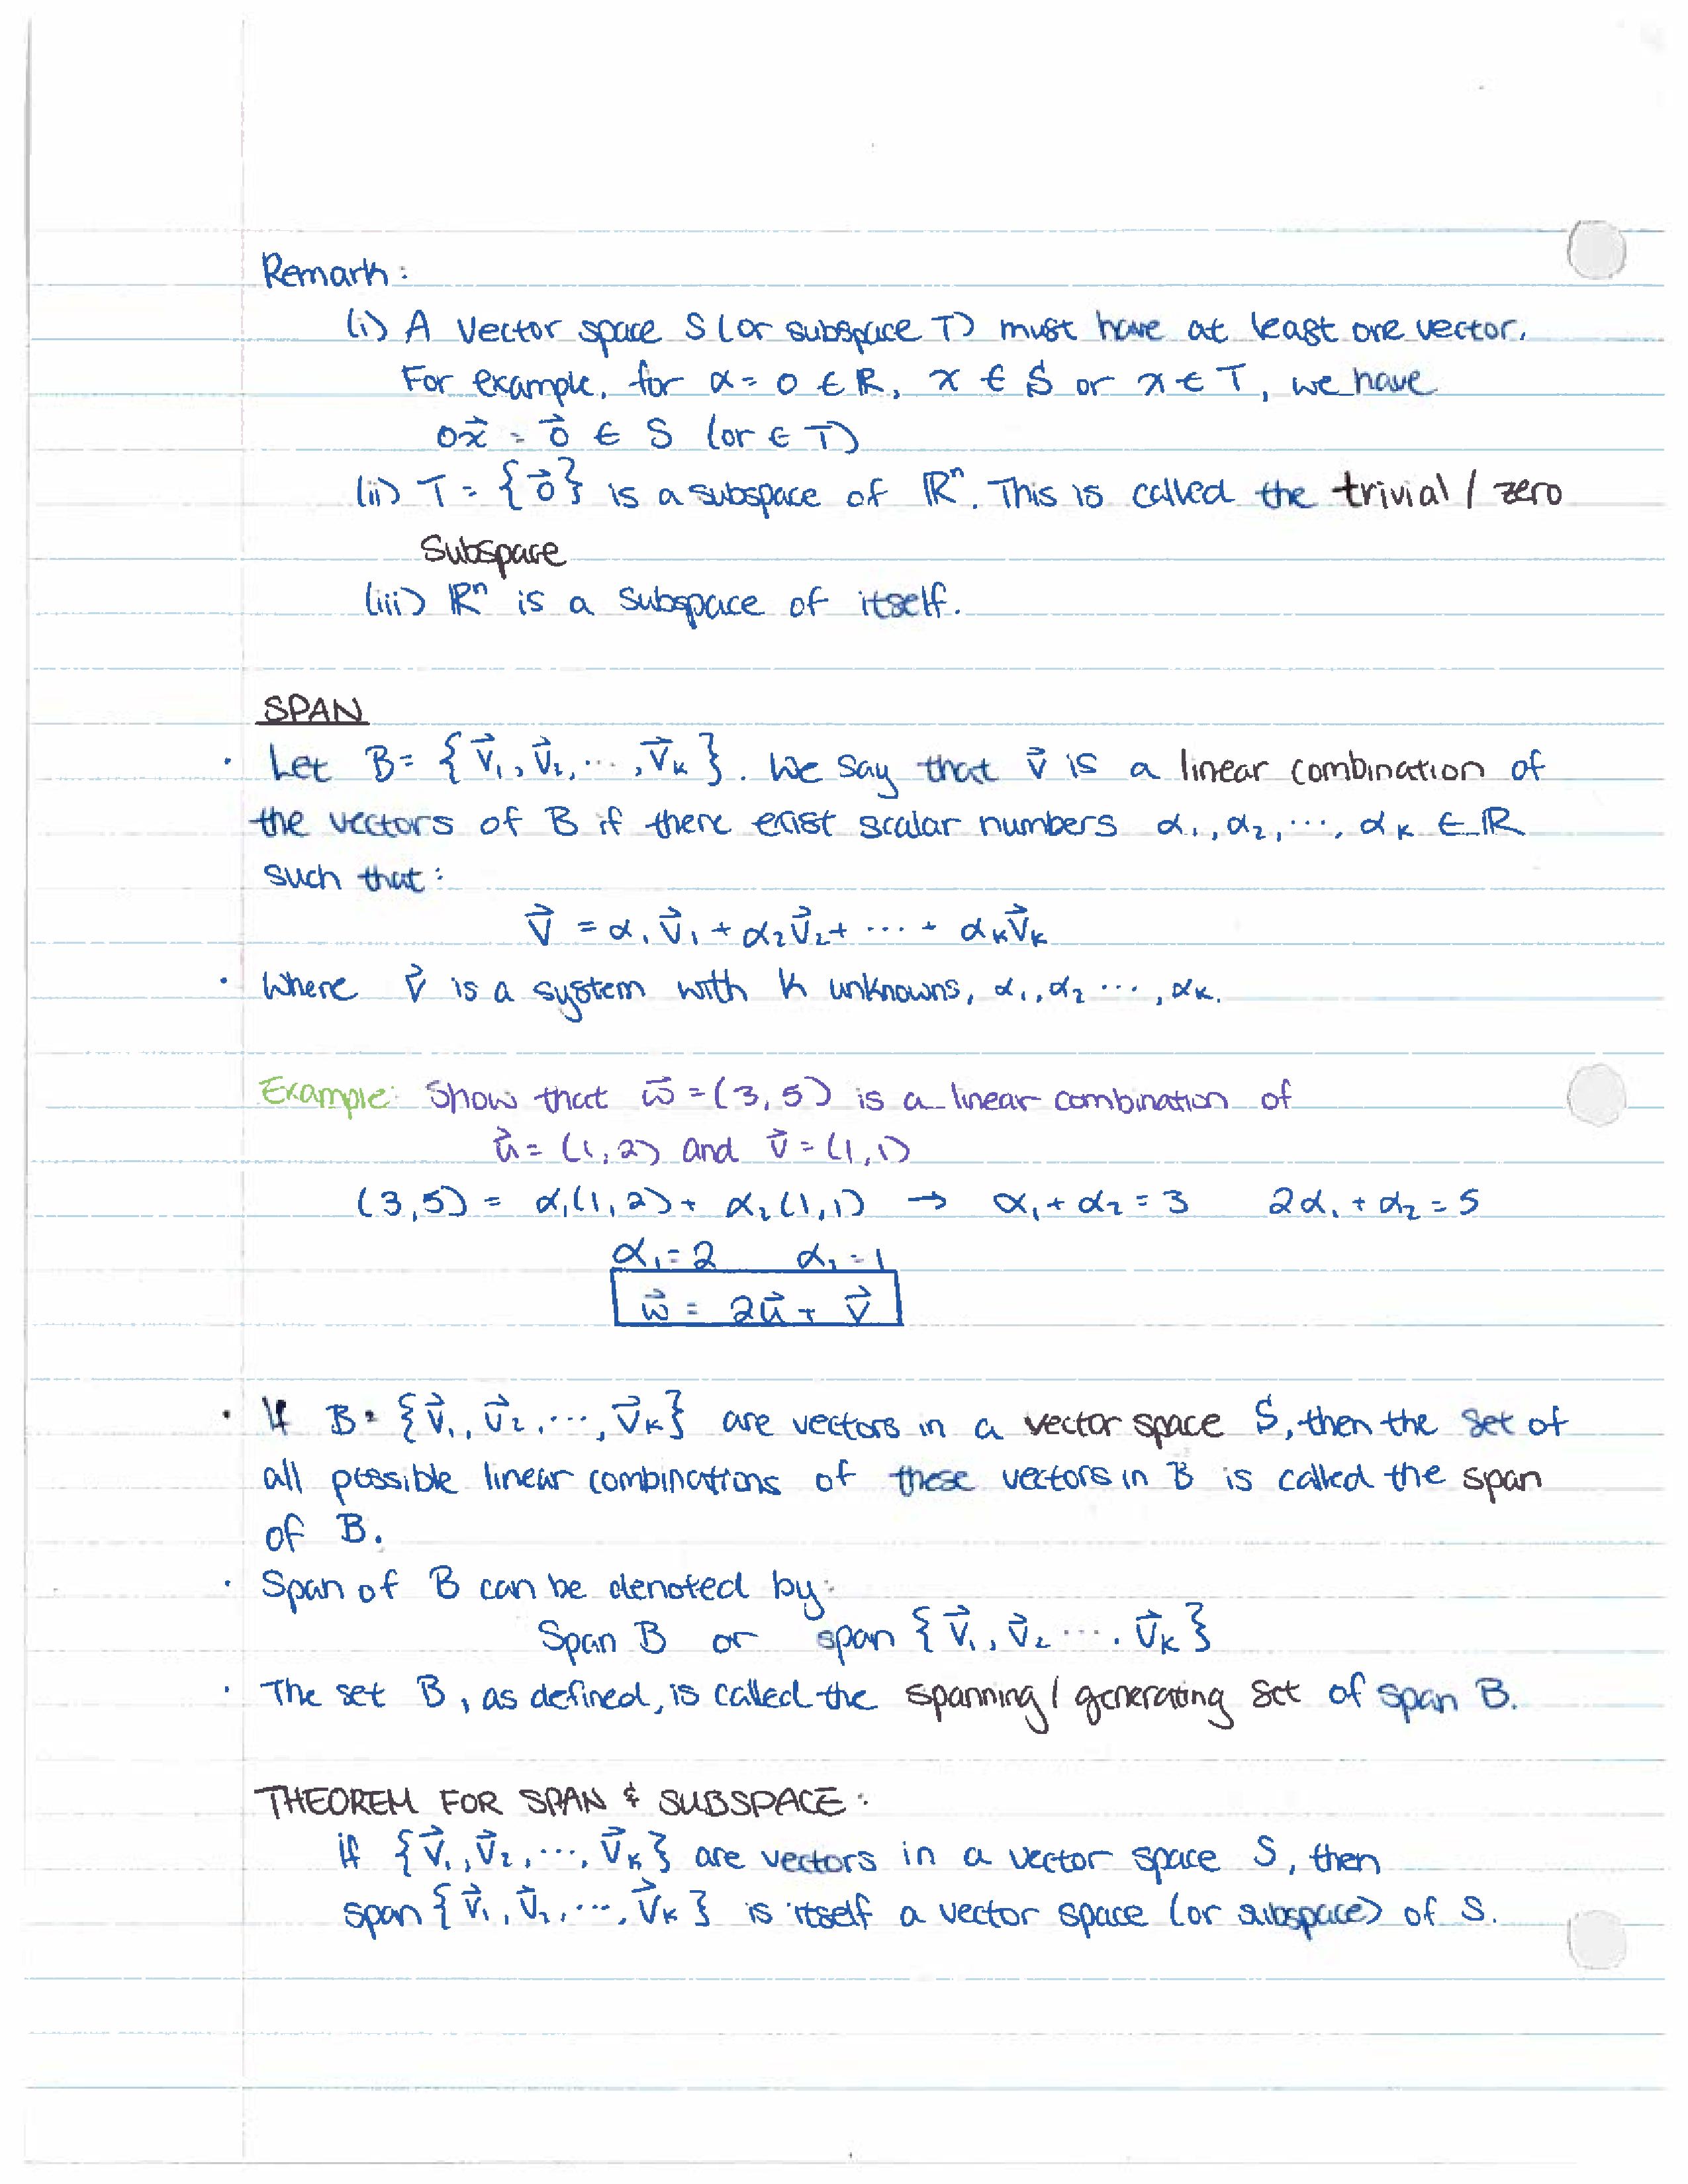 Remark:
(i) A vector space S (or subspace T) must have at least one vector.
For example, for α = 0 ∈ ℝ, x ∈ S or x ∈ T, we have
0x⃗ = 0⃗ ∈ S (or ∈ T)
(ii) T = {0⃗} is a subspace of ℝⁿ. This is called the trivial / zero
subspace
(iii) ℝⁿ is a subspace of itself.
SPAN
· Let B = {v⃗₁, v⃗₂, ..., v⃗ₖ}. We say that v⃗ is a linear combination of
the vectors of B if there exist scalar numbers α₁, α₂, ..., αₖ ∈ ℝ
such that:
v⃗ = α₁v⃗₁ + α₂v⃗₂ + ... + αₖv⃗ₖ
· Where v⃗ is a system with k unknowns, α₁, α₂ ..., αₖ.
Example: Show that w⃗ = (3, 5) is a linear combination of
u⃗ = (1, 2) and v⃗ = (1, 1)
(3, 5) = α₁(1, 2) + α₂(1, 1) → α₁ + α₂ = 3 2α₁ + α₂ = 5
α₁ = 2 α₂ = 1
w⃗ = 2u⃗ + v⃗
· If B = {v⃗₁, v⃗₂, ..., v⃗ₖ} are vectors in a vector space S, then the set of
all possible linear combinations of these vectors in B is called the span
of B.
· Span of B can be denoted by:
Span B or span {v⃗₁, v⃗₂ ..., v⃗ₖ}
· The set B, as defined, is called the spanning / generating set of span B.
THEOREM FOR SPAN & SUBSPACE:
if {v⃗₁, v⃗₂, ..., v⃗ₖ} are vectors in a vector space S, then
span {v⃗₁, v⃗₂, ..., v⃗ₖ} is itself a vector space (or subspace) of S.